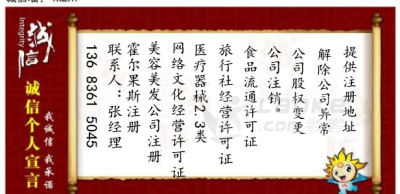 提供注册地址
解除公司异常
公司股权变更
公司注销。
食品流通许可证
旅行社经营许可证
医疗器械2.3类
网络文化经营许可证
美容美发公司注册
霍尔果斯注册
联系人：张经理
136 8361 5045
诚信
Integrity
诚信个人宣言
我诚信 我承诺